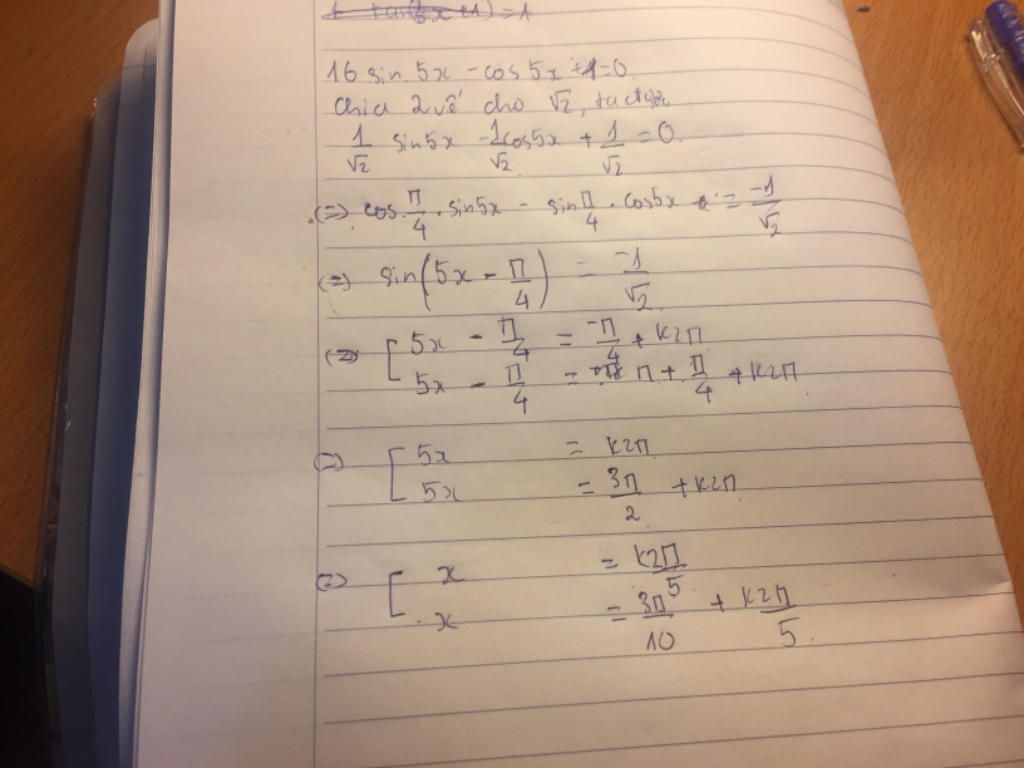 1 + tan(5x + 1) = 1
16 sin 5x - cos 5x + 1 = 0
Chia 2 vế cho √2, ta được
1/√2 sin5x - 1/√2 cos5x + 1/√2 = 0
(=) cos π/4 . sin5x - sin π/4 . cos5x = -1/√2
(=) sin(5x - π/4) = -1/√2
(=) [ 5x - π/4 = -π/4 + k2π
5x - π/4 = π + π/4 + k2π
(=) [ 5x = k2π
5x = 3π/2 + k2π
(=) [ x = k2π/5
x = 3π/10 + k2π/5